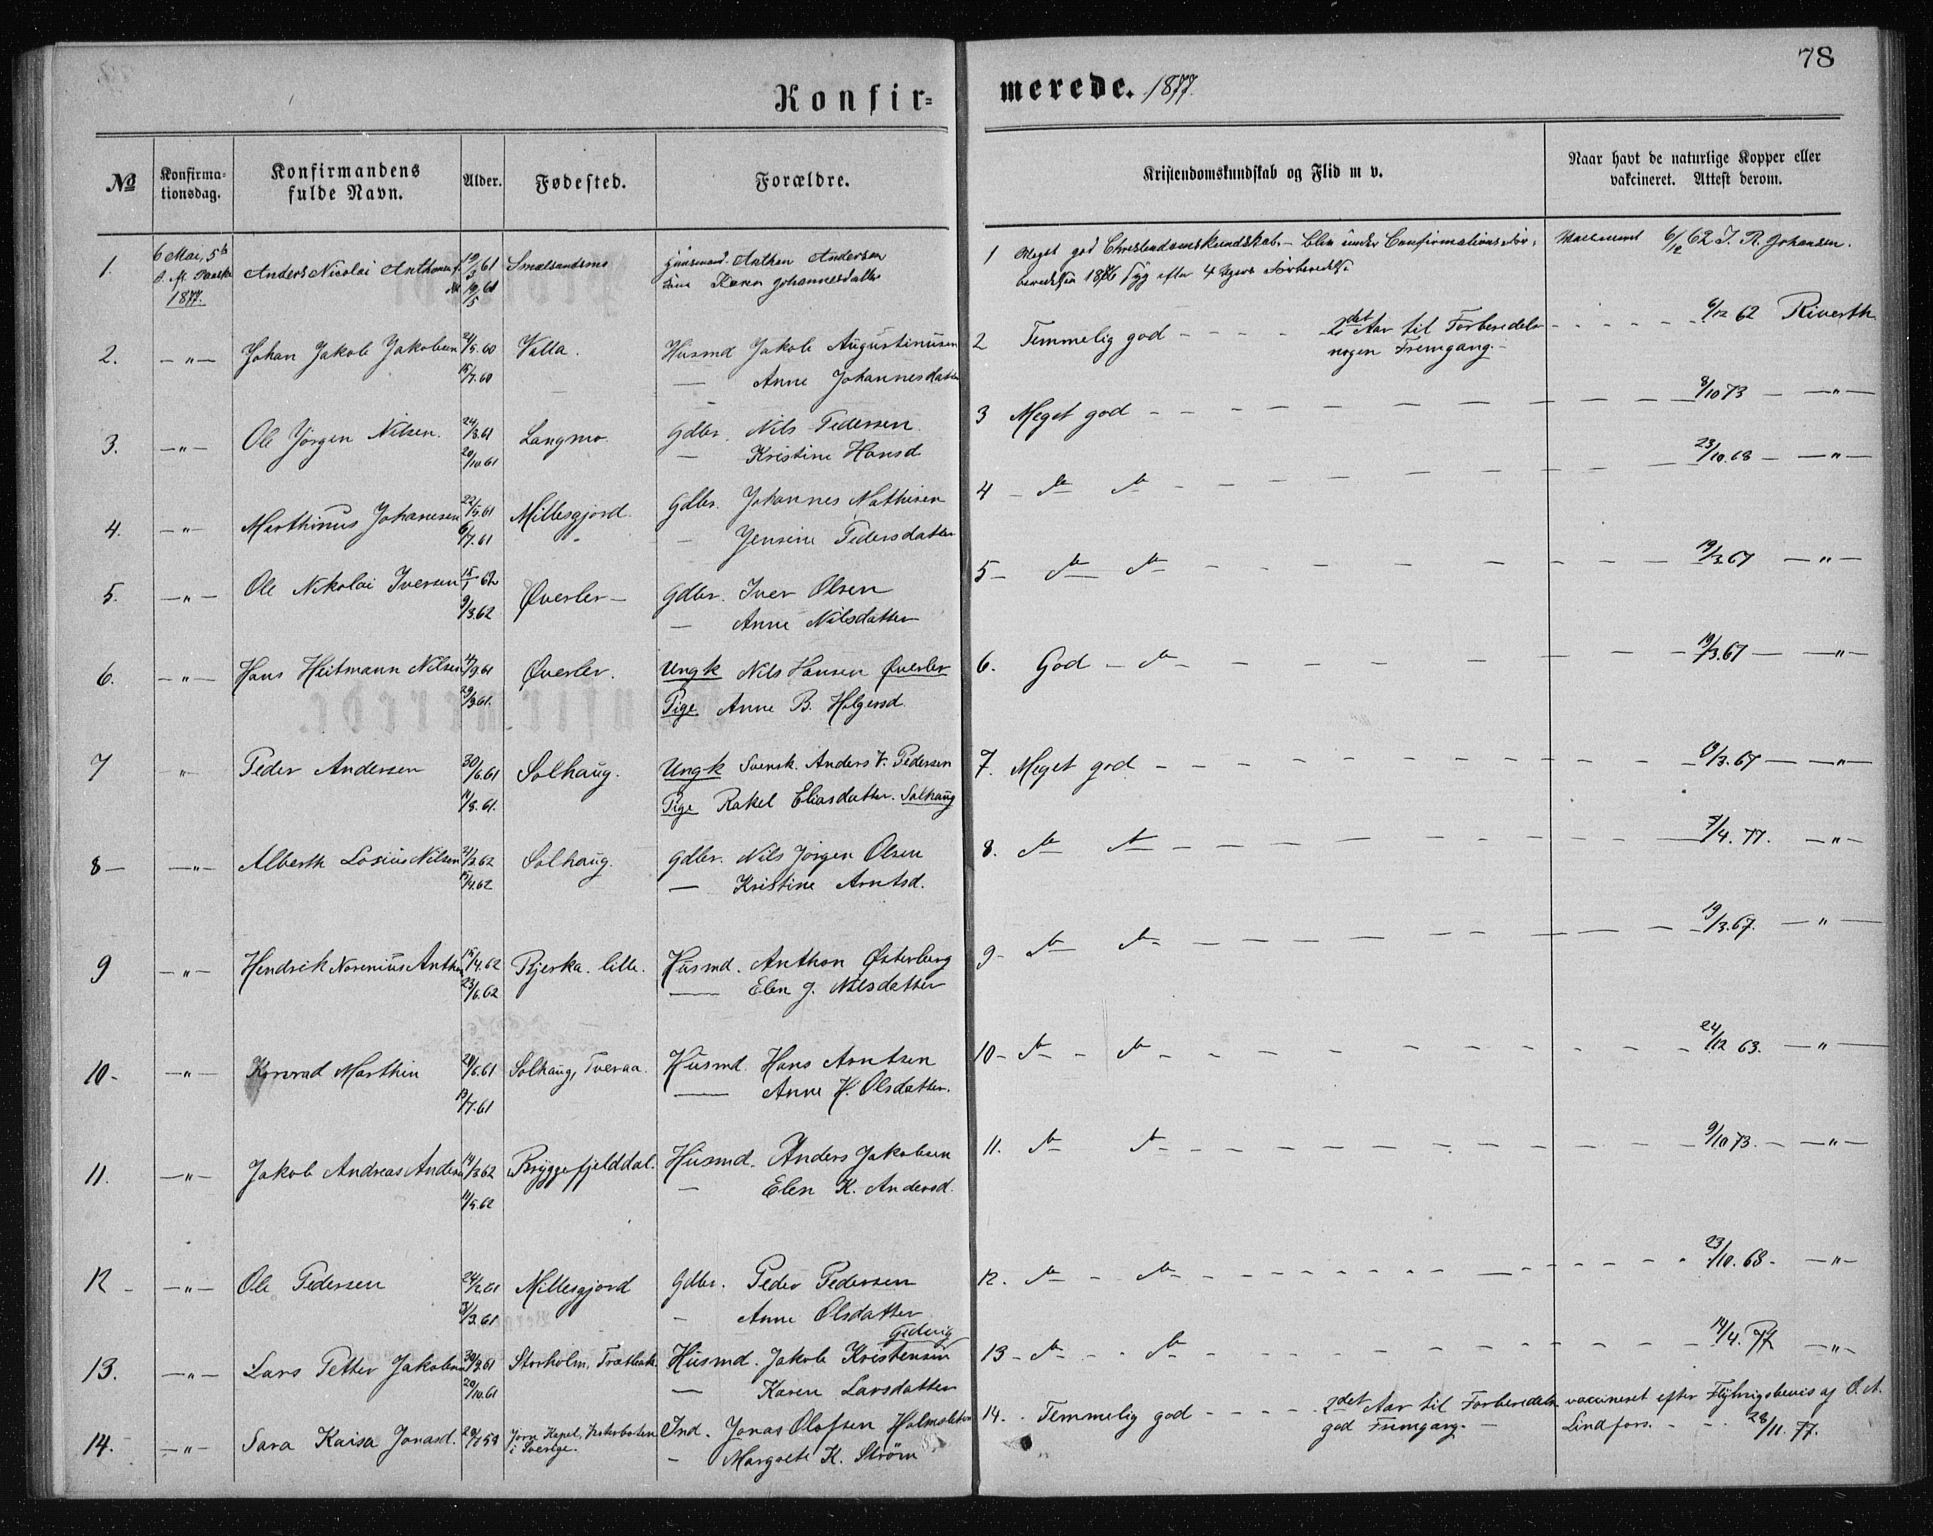 78
Konfir=
merede. 1877.
№
Konfirma-
tionsdag.
Konfirmandens
fulde Navn.
Alder.
Fødested.
Forældre.
Kristendomskundskab og Flid m v.
Naar havt de naturlige Kopper eller
vakcineret. Attest derom.
1. 6 Mai, 5te 1877. Anders Nicolai 19/3 61 19/5 61 Smalsundmo Husmand Anthon Andersen
Karen Johannesdatter
1 Meget god Christendomskundskab. – blev under Confirmations-For-
beredelsen 1876 syg efter 4 Ugers Forberedelse 6/12 62 J. R. Johansen.
2. –"– Johan Jakob Jakobsen 21/5.60 15/7.60 Valla. Husmd Jakob Augustinusen
— Anne Johannesdatter
2 Temmelig god – – – – 2det Aar til Forberedels – – – – 6/12 62 Riverth
nogen Fremgang. –
3. –"– Ole Jörgen Nilsen. 24/3.61 20/10.61 Langmo. Gdbr. Nils Pedersen.
– Kristine Hansd.
3 Meget god – – – – 8/10 73 – –"–
4. –"– Marthinus Johanesen 22/5.61 6/7.61 Millesgjord. Gdbr. Johannes Mathisen
– Jensine Pedersdatter
4 – do do – – – – 23/10.68 – –"–
5. –"– Ole Nikolai Iversen 15/1 62 9/3.62 Øverler – Gdbr. Iver Olsen
— Anne Nilsdatter
5 – do do – – – – 19/3.67 – –"–
6. –"– Hans Heitmann Nilsen 29/9.61. Øverler. Ungk Nils Hansen Øverler
Pige Anne B. Holgersd.
6. God – do – – – – 19/3.67 – –"–
7 " Peder Andersen 30/6.61 11/8.61. Solhaug. Ungk Svensk. Anders V. Pedersen
Pige Rakel Eliasdatter. Solhaug
7. Meget god – – – – 19/3.67 – –"–
8 – –"– Alberth Losius Nilsen 21/2.62 15/4.62 Solhaug. Gdbr. Nils Jörgen Olsen
— Kristine Arntsd.
8. do do – – – – 7/4. 77. –"–
9 –"– Hendrik Norenius Anth 15/4.62 23/6.62 Bjerka. lille. Husmd. Anthon Østerberg
— Elen J. Nilsdatter
9 – do do – – – – 19/3.67. – "–
10 – –"– Konrad Marthin 24/6.61 19/7.61 Solhaug, Tveraa. Husmd. Hans Arntsen
— Anne H. Olsdatter.
10 – do – do – – – – 24/12 63. – " –
11. –"– Jakob Andreas Anders 14/3.62 11/5.62 Bryggefjelddal. Husmd. Anders Jakobsen
– Elen K. Andersd.
11. do do – – – – 9/10 73. – –"–
12 – –"– Ole Pedersen 24/2.61 31/3.61 Millesgjord Gdbr. Peder Pedersen
– Anne Olsdatter
12. do – do – – – – 23/10.68. – –"–
13. –"– Lars Petter Jakobsen 30/9.61 20/10.61 Storholm, Husmd. Jakob Kristensen
— Karen Larsdatter
13 – do – do – – – – 14/4. 77 –"–
14. –"– Sara Kaisa Jonasd. Jörn Kapel, Vesterbotten Ind. Jonas Olofsen
i Sverige. – Margrete K. Ström
14. Temmelig god – – – – 2det Aar til Forberedels vaccineret efter Flytningsbevis af O. A.
god Fremgang. – Lindfors. – – 28/11. 77.